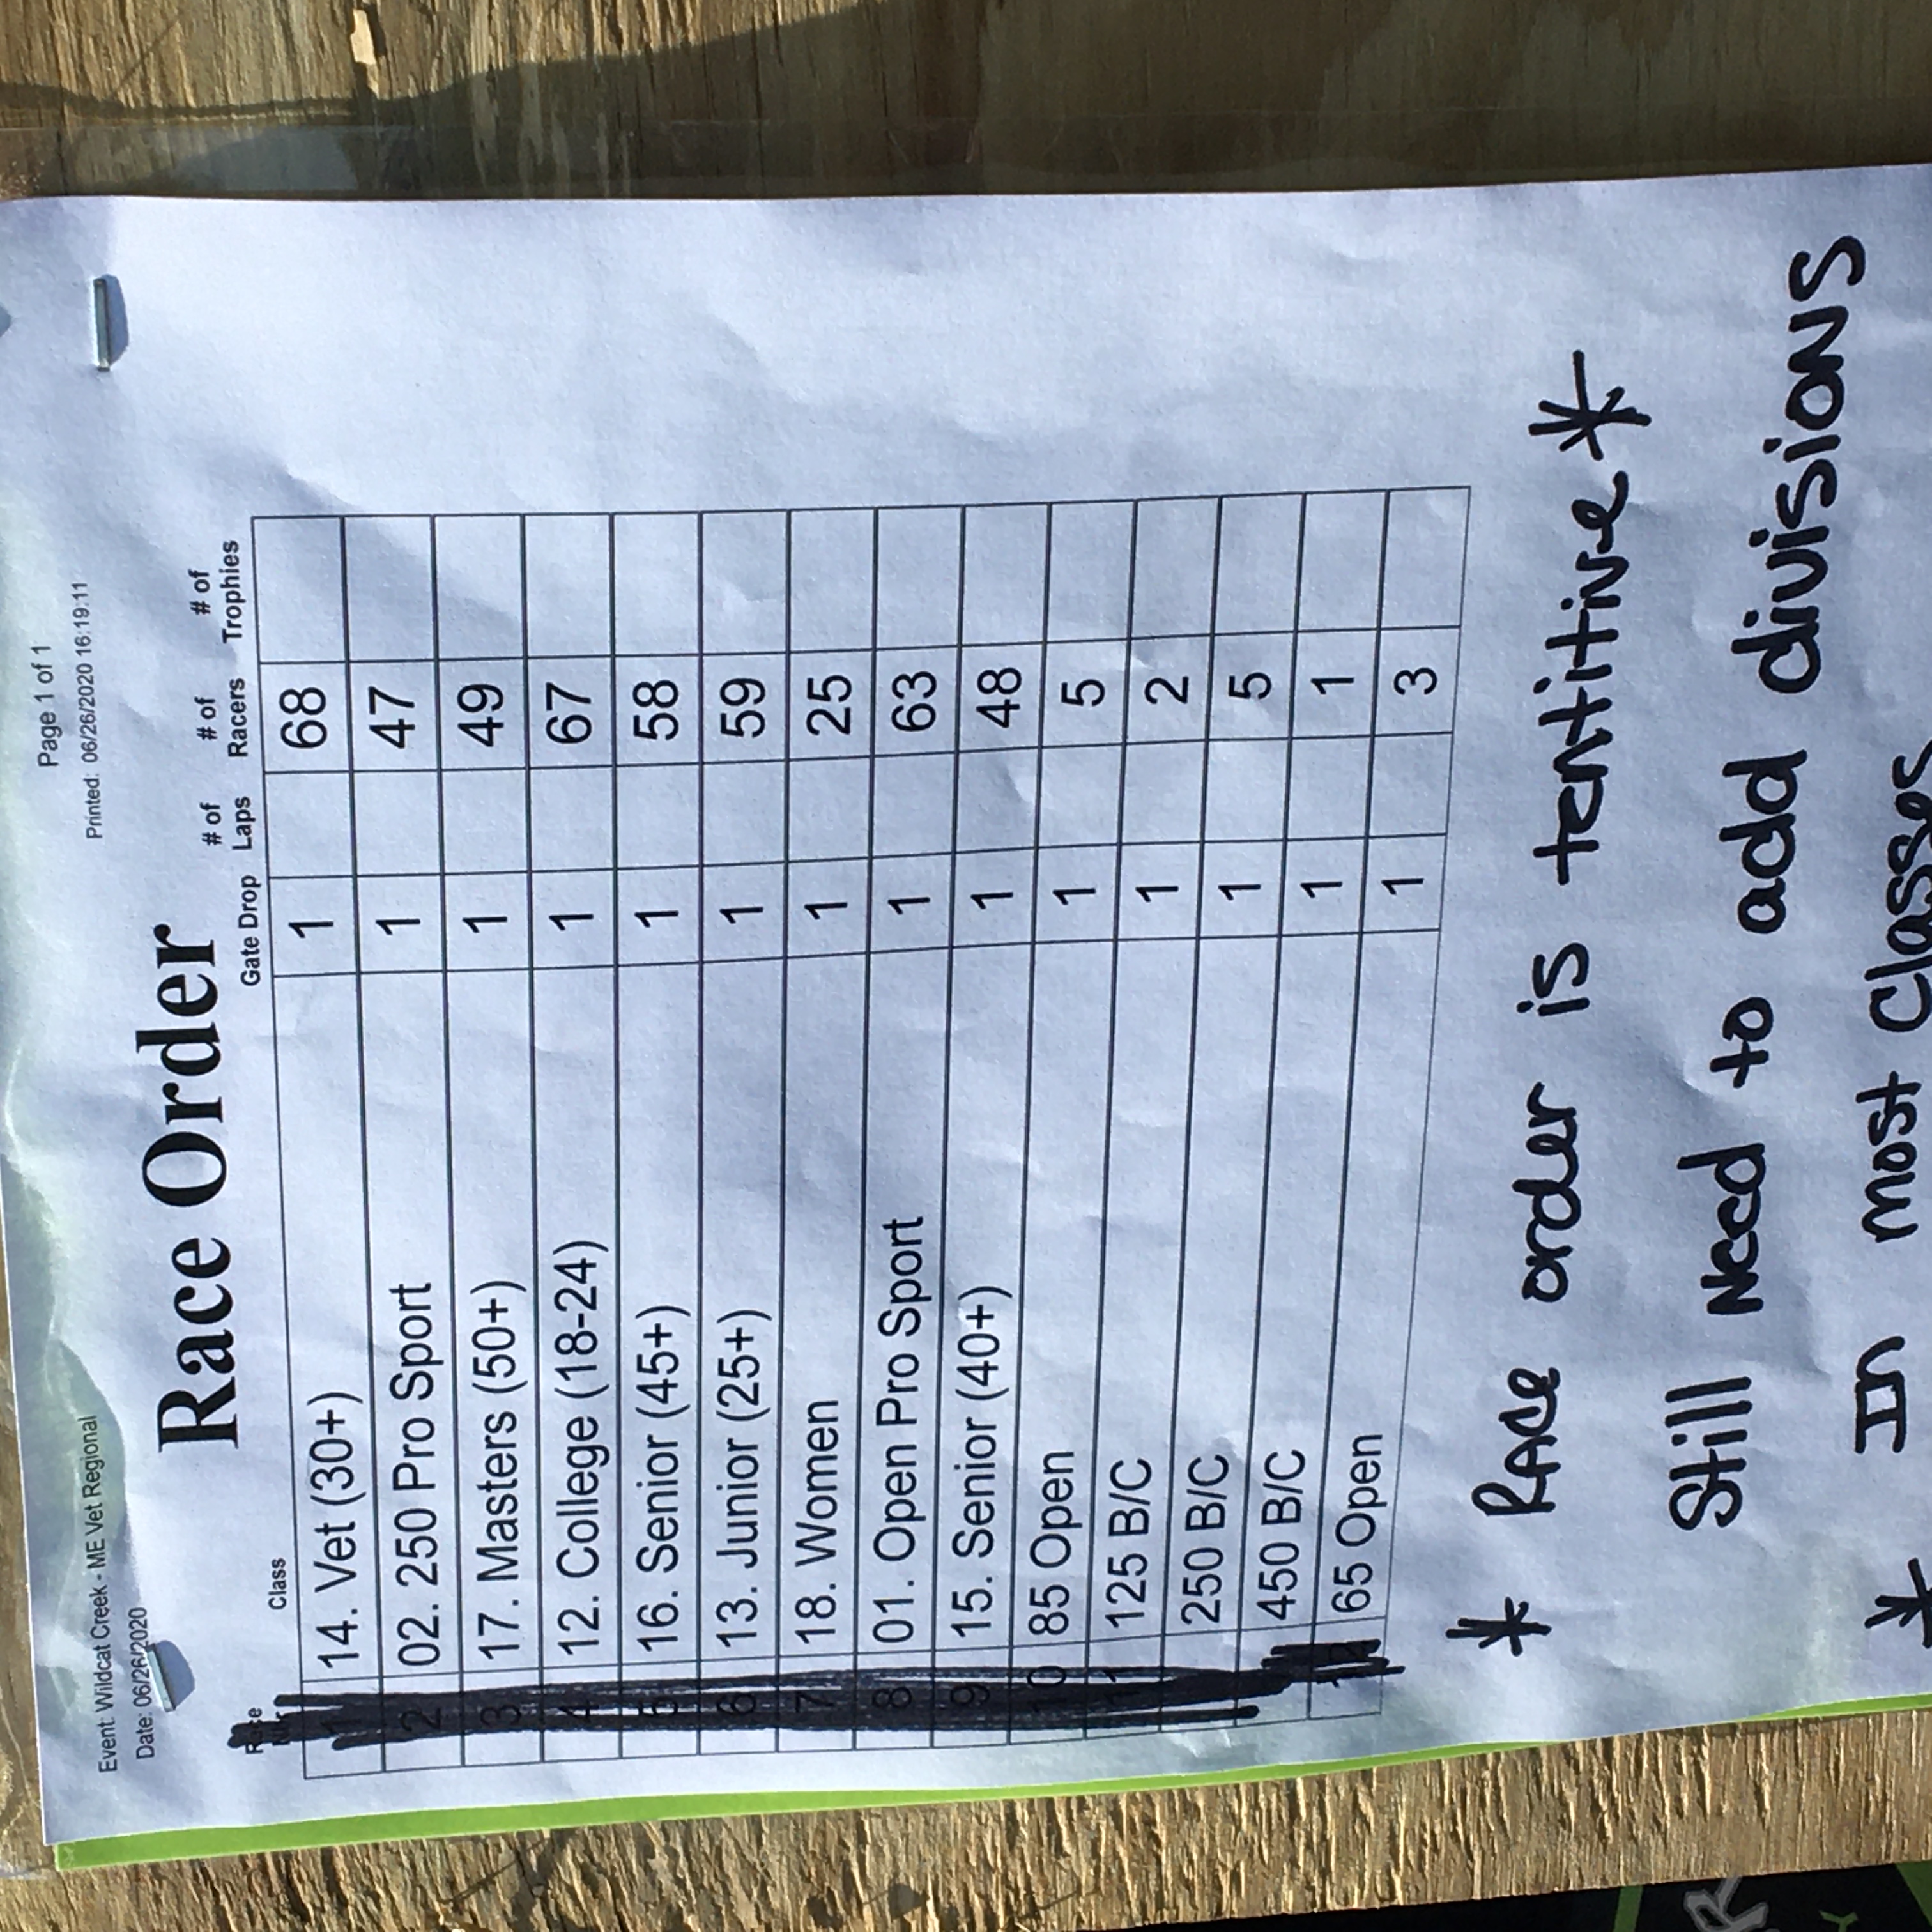 Page 1 of 1
Event: Wildcat Creek - ME Vet Regional Printed: 06/26/2020 16:19:11
Date: 06/26/2020
Race Order
Race Class Gate Drop # of Laps # of Racers # of Trophies
1 14. Vet (30+) 1 68
2 02. 250 Pro Sport 1 47
3 17. Masters (50+) 1 49
4 12. College (18-24) 1 67
5 16. Senior (45+) 1 58
6 13. Junior (25+) 1 59
7 18. Women 1 25
8 01. Open Pro Sport 1 63
9 15. Senior (40+) 1 48
10 85 Open 1 5
11 125 B/C 1 2
250 B/C 1 5
450 B/C 1 1
65 Open 1 3
* RACe order is tentitive *
Still Need to add divisions
* In most Classes